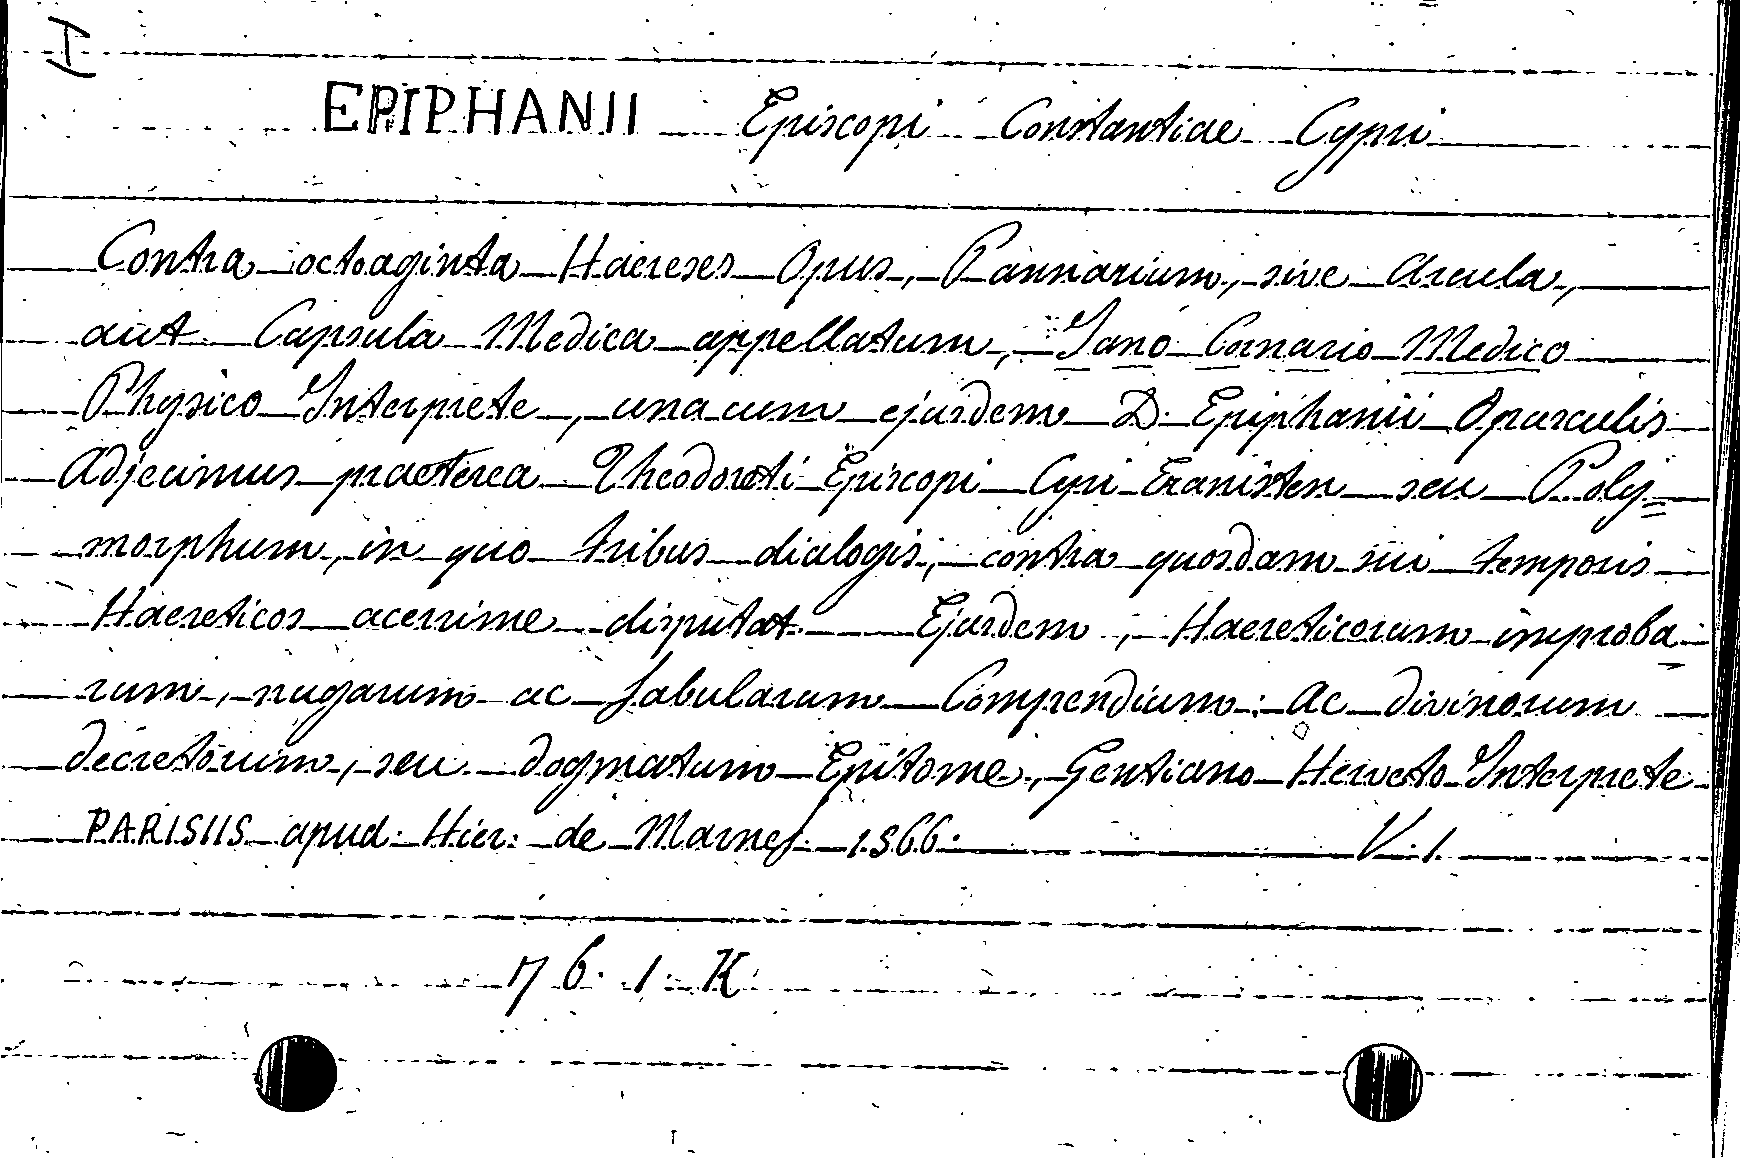 I
EPIPHANII Episcopi Constantiae Cypri
Contra octoaginta Haereses Opus, Pannarium, sive Arcula,
aut Capsula Medica appellatum, Jano Cornario Medico
Physico Interprete, una cum ejusdem D. Epiphanii Opusculis
Adjecimus praeterea Theodoreti Episcopi Cyri Eranisten seu Poly=
morphum, in quo tribus dialogis, contra quosdam sui temporis
Haereticos acerrime disputat. Ejusdem, Haereticorum improba
rum, nugarum ac fabularum Compendium: Ac divinorum
decretorum, seu dogmatum Epitome, Gentiano Herveto Interprete
PARISIIS apud. Hier: de Marnef. 1566. V. 1
76. 1. K